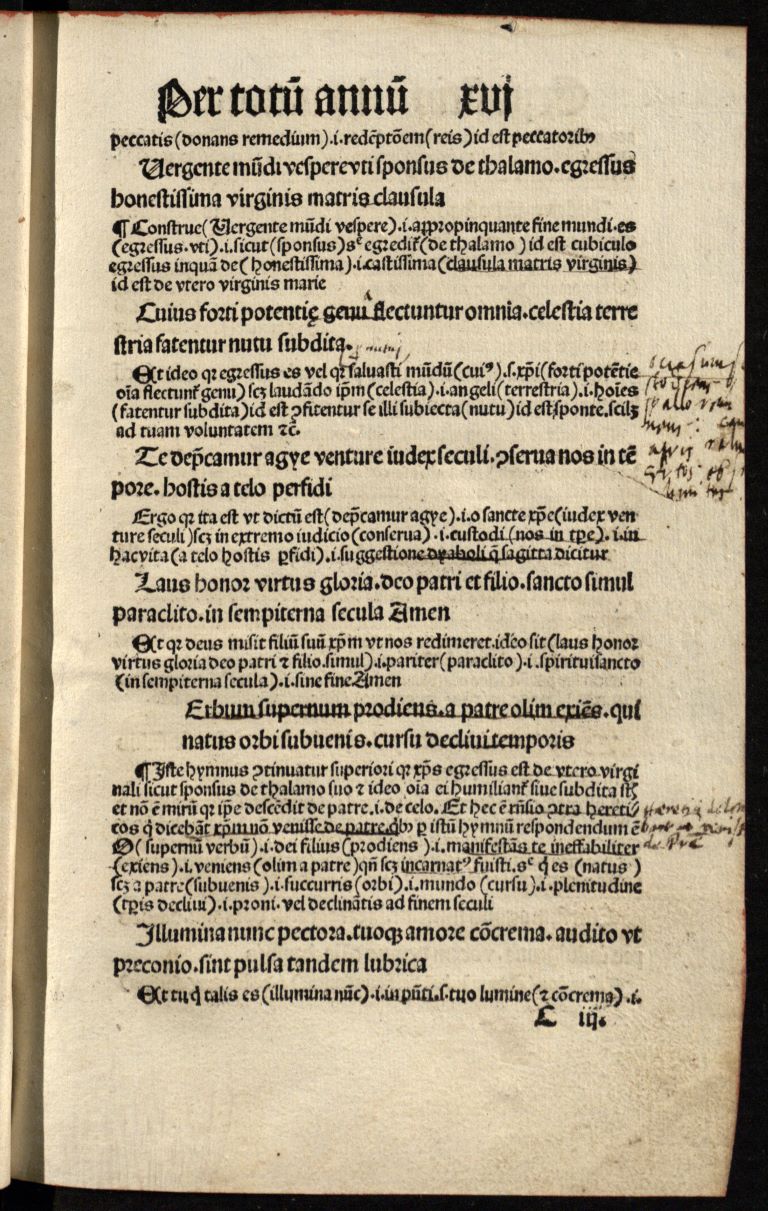 Per totū annū xvj
peccatis (donans remedium) .i. redēptōem (reis) id est peccatorib9
Uergente mūdi vespere vti sponsus de thalamo. egressus
honestissima virginis matris clausula
¶ Construe (Uergente mūdi vespere) .i. appropinquante fine mundi. es
(egressus. vti) .i. sicut (sponsus) sc egredit᷑ (de thalamo) id est cubiculo
egressus inquā de (honestissima) .i. castissima (clausula matris virginis)
id est de vtero virginis marie
Cuius forti potentię genu flectuntur omnia. celestia terre
stria fatentur nutu subdita.
Et ideo qꝛ egressus es vel qꝛ saluasti mūdū (cuiꝰ) .s. xp̄i (forti potētie
oīa flectunt᷑ genu) scꝫ laudādo ip̄m (celestia) .i. angeli (terrestria) .i. hoīes
(fatentur subdita) id est ꝯfitentur se illi subiecta (nutu) id est sponte. scilꝫ
ad tuam voluntatem ⁊c̄.
Te dep̄camur agye venture iudex seculi. ꝯserua nos in tē
pore. hostis a telo perfidi
Ergo qꝛ ita est vt dictū est (dep̄camur agye) .i. o sancte xp̄e (iudex ven
ture seculi) scꝫ in extremo iudicio (conserua) .i. custodi (nos in tp̄e) .i. in
hac vita (a telo hostis ꝑfidi) .i. suggestione dyaboli q̄ sagitta dicitur
Laus honor virtus gloria. deo patri et filio. sancto simul
paraclito. in sempiterna secula Amen
Et qꝛ deus misit filiū suū xp̄m vt nos redimeret. ideo sit (laus honor
virtus gloria deo patri ⁊ filio. simul) .i. pariter (paraclito) .i. sp̄iritui sancto
(in sempiterna secula) .i. sine fine Amen
Erbum supernum prodiens. a patre olim exiēs. qui
natus orbi subuenis. cursu decliui temporis
¶ Iste hymnus ꝯtinuatur superiori qꝛ xp̄s egressus est de vtero virgi
nali sicut sponsus de thalamo suo ⁊ ideo oīa ei humiliant᷑ siue subdita st̄
et nō ē mirū qꝛ ip̄e descēdit de patre .i. de celo. Et hec ē rn̄sio ꝯtra hereti
cos q̄ dicebāt xp̄m nō venisse de patre. qb9 ꝑ istū hymnū respondendum ē
O (supernū verbū) .i. dei filius (prodiens) .i. manifestās te ineffabiliter
(exiens) .i. veniens (olim a patre) qn̄ scꝫ incarnatꝰ fuisti. sc q̄ es (natus)
scꝫ a patre (subuenis) .i. succurris (orbi) .i. mundo (cursu) .i. plenitudine
(tp̄is decliui) .i. proni. vel declinātis ad finem seculi
Illumina nunc pectora. tuoqꝫ amore cōcrema. audito vt
preconio. sint pulsa tandem lubrica
Et tu q̄ talis es (illumina nūc) .i. in pn̄ti .s. tuo lumine (⁊ cōcrema) .i.
C iij.